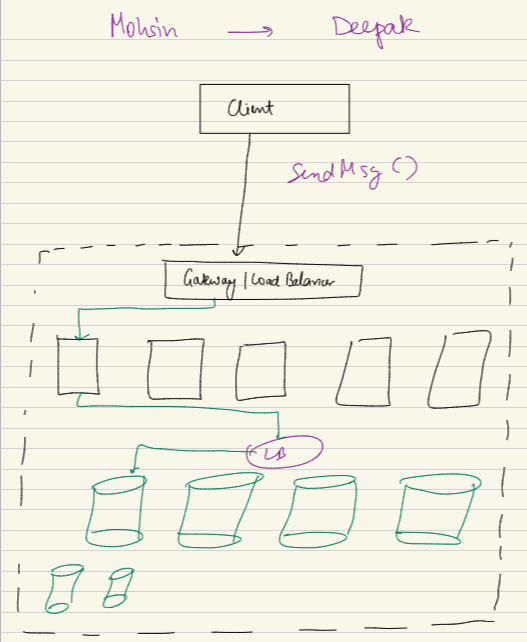 Mohsin → Deepak
Client
SendMsg()
Gateway | Load Balancer
LB